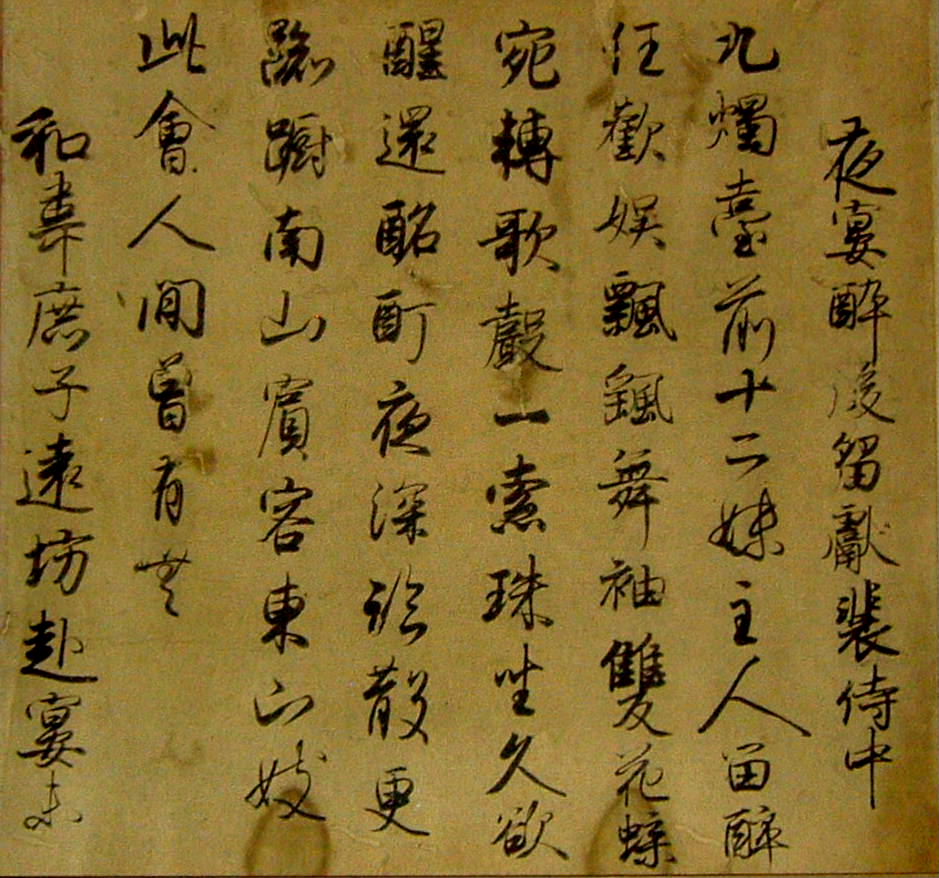 夜宴醉後留獻裴侍中
九燭臺前十二姝主人留醉
任歡娱飄颻舞袖雙花蝶
宛轉歌聲一索珠坐久欲
醒還酩酊夜深初散更
踟蹰南山賓客東山妓
此會人間曾有無
和韋庶子遠坊赴宴未